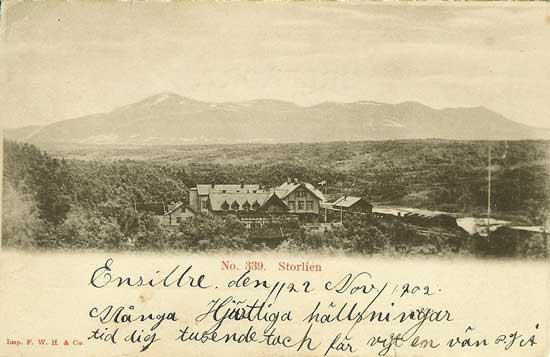 No. 339. Storlien
Ensillre. den, 22 Nov, 1902.
Många Hjärtliga hällsningar
tid dig tusende toch får vigt en vän
Imp. F. W. H. & Co.